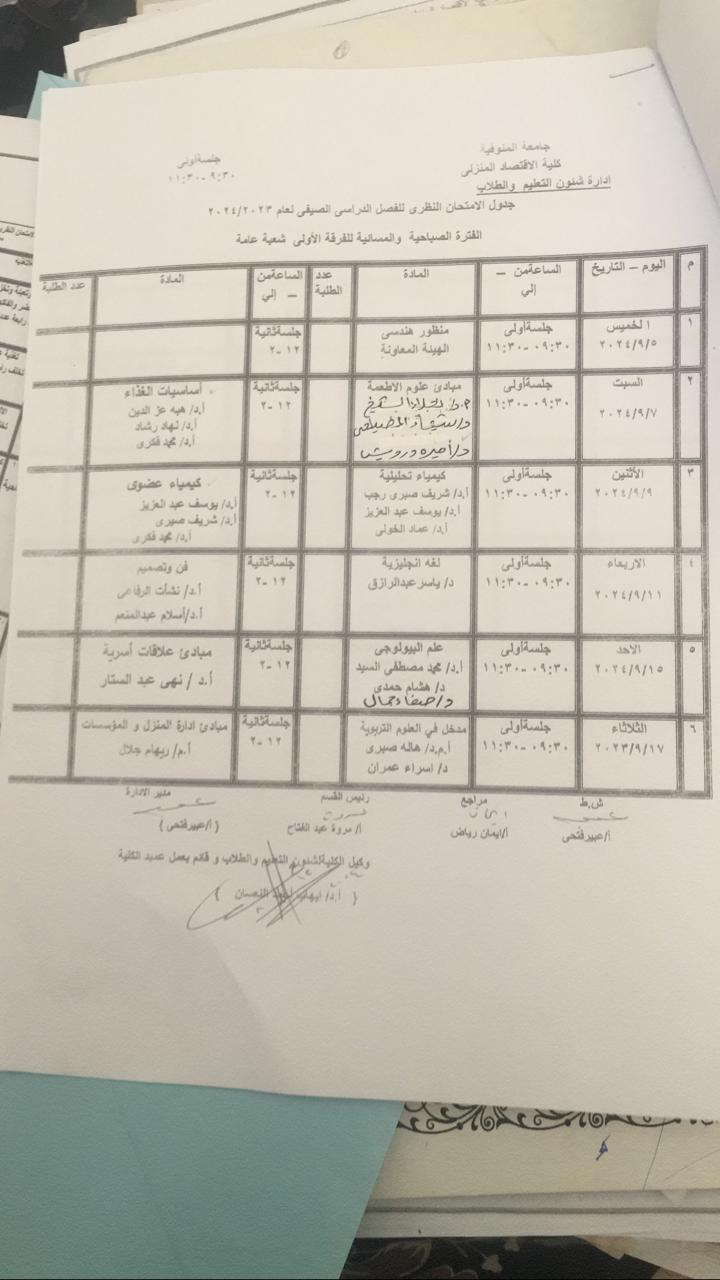 جامعة المنوفية
كلية الاقتصاد المنزلى
إدارة شئون التعليم والطلاب
جلسة أولى
٩:٣٠-١١:٣٠
جدول الامتحان النظرى للفصل الدراسى الصيفى لعام ٢٠٢٤/٢٠٢٣
الفترة الصباحية والمسائية للفرقة الأولى شعبة عامة
م اليوم – التاريخ الساعة من – إلي المادة عدد الطلبة الساعة من – إلي المادة عدد الطلبة
١ الخميس جلسة أولى منظور هندسى جلسة ثانية
٢٠٢٤/٩/٥ ٠٩:٣٠-١١:٣٠ الهيئة المعاونة ١٢-٢
٢ السبت جلسة أولى مبادئ علوم الاطعمة جلسة ثانية أساسيات الغذاء
٢٠٢٤/٩/٧ ٠٩:٣٠-١١:٣٠ ١٢-٢ أ.د/ هبه عز الدين
أ.د/ نهاد رشاد
د/ أميره درويش أ.د/ محمد فكرى
٣ الأثنين جلسة أولى كيمياء تحليلية جلسة ثانية كيمياء عضوى
٢٠٢٤/٩/٩ ٠٩:٣٠-١١:٣٠ أ.د/ شريف صبرى رجب ١٢-٢ أ.د/ يوسف عبد العزيز
أ.د/ يوسف عبد العزيز أ.د/ شريف صبرى
أ.د/ عماد الخولى أ.د/ محمد فكرى
٤ الاربعاء جلسة أولى لغه انجليزية جلسة ثانية فن وتصميم
٢٠٢٤/٩/١١ ٠٩:٣٠-١١:٣٠ د/ ياسر عبدالرازق ١٢-٢ أ.د/ نشأت الرفاعى
أ.د/ أسلام عبدالمنعم
٥ الاحد جلسة أولى علم البيولوجى جلسة ثانية مبادئ علاقات أسرية
٢٠٢٤/٩/١٥ ٠٩:٣٠-١١:٣٠ أ.د/ محمد مصطفى السيد ١٢-٢ أ.د / نهى عبد الستار
د/ هشام حمدى
د/ صفاء جمال
٦ الثلاثاء جلسة أولى مدخل في العلوم التربوية جلسة ثانية مبادئ ادارة المنزل و المؤسسات
٢٠٢٣/٩/١٧ ٠٩:٣٠-١١:٣٠ أ.م.د/ هاله صبرى ١٢-٢ أ.م/ ريهام جلال
د/ اسراء عمران
ش.ط مراجع رئيس القسم مدير الادارة
أ/عبير فتحى أ/ايمان رياض أ/ مروة عبد الفتاح ( أ/عبير فتحى )
وكيل الكلية لشئون التعليم والطلاب و قائم بعمل عميد الكلية